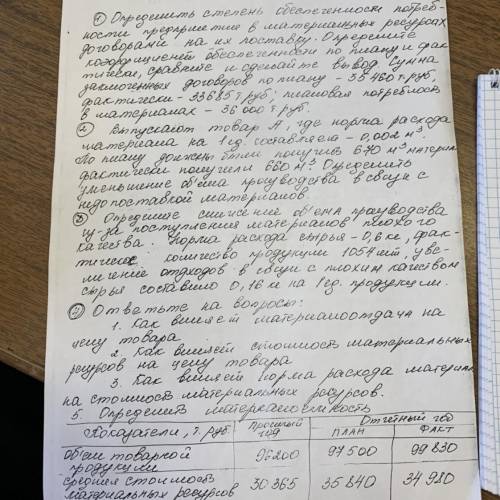 ① Определить степень обеспеченности потреб-
ности предприятия в материальных ресурсах
договорами на их поставку. Определите
коэффициент обеспеченности по плану и фак-
тически, сравните и сделайте вывод. Сумма
заключенных договоров по плану - 35460 т.руб,
фактически - 33685 т.руб; плановая потребность
в материалах - 36000 т.руб.
② Выпускают товар А, где норма расхода
материала на 1 ед. составляет - 0,002 м³.
По плану должны были получить 670 м³ материала
фактически получили 660 м³. Определить
уменьшение объёма производства в связи с
недопоставкой материалов.
③ Определите снижение объёма производства
из-за поступления материалов плохого
качества. Норма расхода сырья - 0,6 кг, фак-
тическое количество продукции 1054 шт, уве-
личение отходов в связи с плохим качеством
сырья составило 0,16 кг на 1 ед. продукции.
④ Ответьте на вопросы:
1. Как влияет материалоотдача на
цену товара
2. Как влияет стоимость материальных
ресурсов на цену товара
3. Как влияет норма расхода материала
на стоимость материальных ресурсов.
5. Определить материалоемкость
Показатели, т.руб. Прошлый год Отчетный год
ПЛАН ФАКТ
объем товарной продукции 96200 97500 99830
средняя стоимость материальных ресурсов 30365 35840 34980